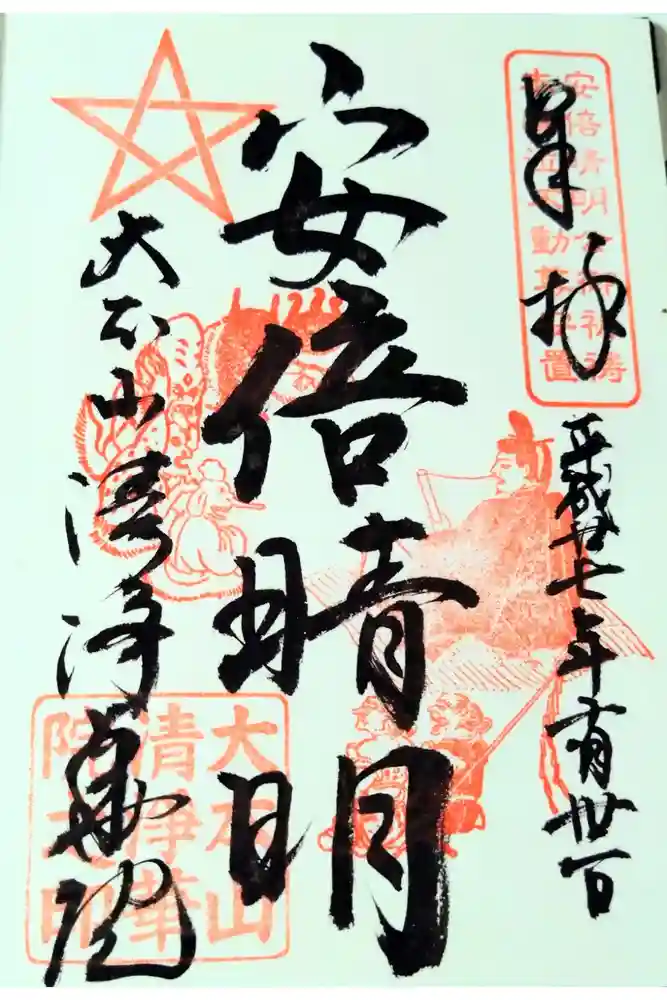 安倍晴明公御祈祷
不動尊安置
奉拝
平成廿七年十月卅一日
安倍晴明
大本山清浄華院
大本山
清浄華
院之印